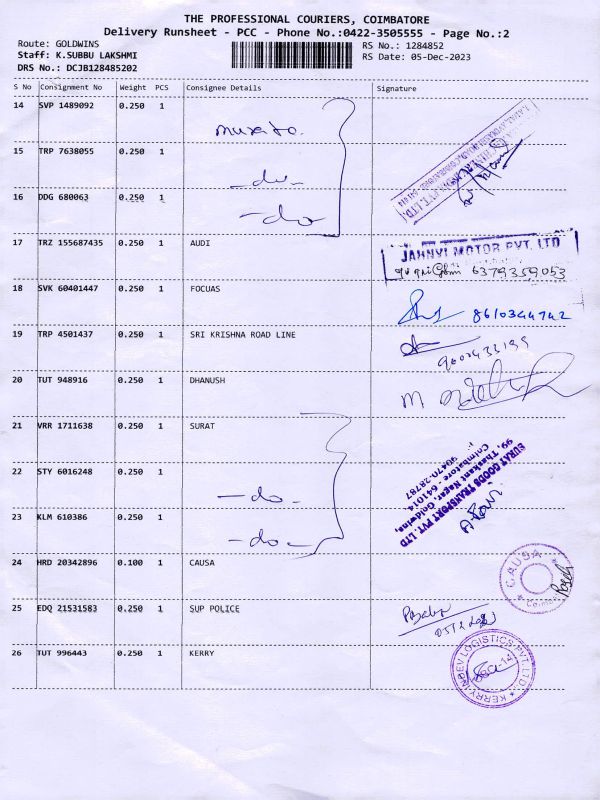 THE PROFESSIONAL COURIERS, COIMBATORE
Delivery Runsheet - PCC - Phone No.:0422-3505555 - Page No.:2
Route: GOLDWINS
RS No.: 1284852
Staff: K.SUBBU LAKSHMI
RS Date: 05-Dec-2023
DRS No.: DCJB128485202
S No Consignment No Weight PCS Consignee Details Signature
14 SVP 1489092 0.250 1
15 TRP 7638055 0.250 1
-do-
16 DDG 680063 0.250 1
-do
17 TRZ 155687435 0.250 1 AUDI
JAHNVI MOTOR PVT. LTD
6379359053
18 SVK 60401447 0.250 1 FOCUAS
8610344742
19 TRP 4501437 0.250 1 SRI KRISHNA ROAD LINE
20 TUT 948916 0.250 1 DHANUSH
21 VRR 1711638 0.250 1 SURAT
SURAT GOODS TRANSPORT PVT. LTD
99, Thanknnt Nagar, Goldwins,
Coimbatore - 641014
90470-28787
22 STY 6016248 0.250 1
-do-
23 KLM 610386 0.250 1
-do-
24 HRD 20342896 0.100 1 CAUSA
CAUSA
25 EDQ 21531583 0.250 1 SUP POLICE
26 TUT 996443 0.250 1 KERRY
KERRY INDEV LOGISTICS PVT. LTD.